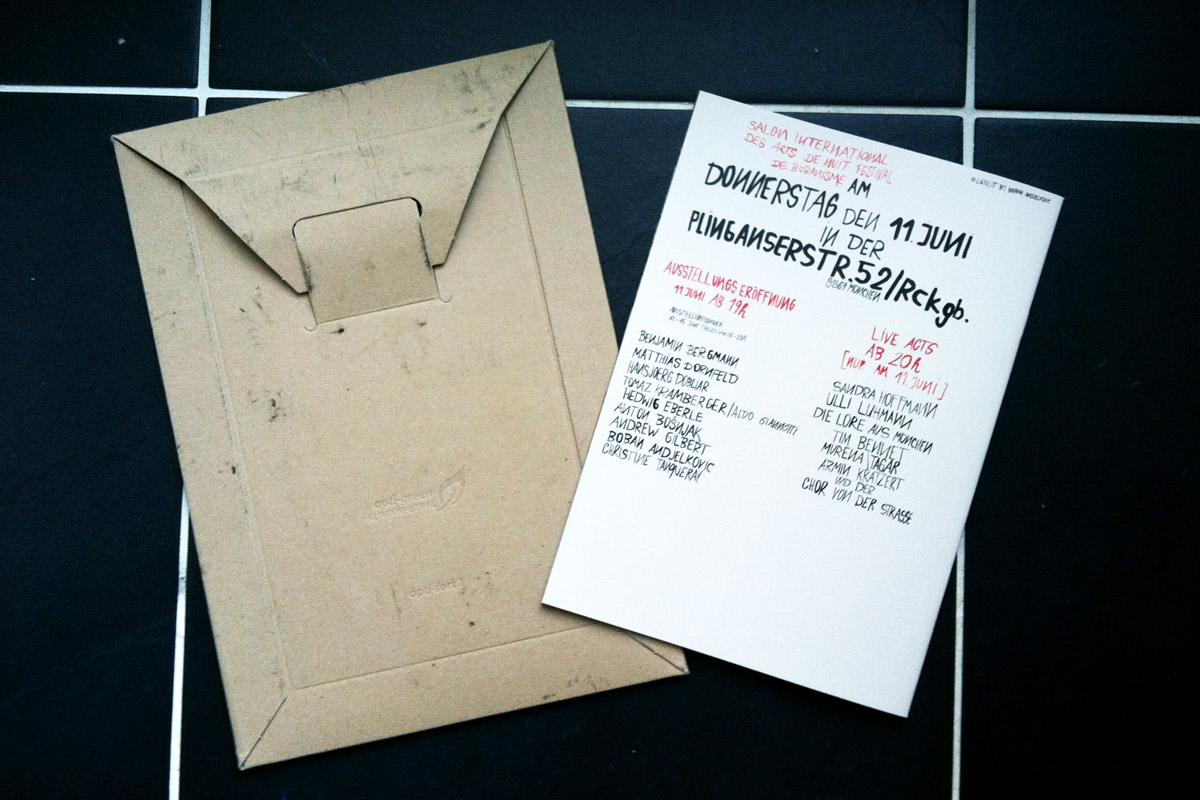 SALON INTERNATIONAL
DES ARTS DE NUIT FESTIVAL
DE BOBANISME AM
DONNERSTAG DEN 11. JUNI
IN DER
PLINGANSERSTR. 52/Rckgb.
81369 MÜNCHEN
AUSSTELLUNGSERÖFFNUNG
11 JUNI AB 19h
BENJAMIN BERGMANN
MATTHIAS DORNFELD
HANSJOERG DOBLIAR
TOMAZ KRAMBERGER/ALDO GIANNOTTI
HEDWIG EBERLE
ANTON BOŠNJAK
ANDREW GILBERT
BOBAN ANDJELKOVIC
CHRISTINE TANQUERAY
LIVE ACTS
AB 20h
[NUR AM 11. JUNI]
SANDRA HOFFMANN
ULLI LUHMANN
DIE LORE AUS MÜNCHEN
TIM BENNET
MURENA YAGAR
ARMIN KRATZERT
UND DER
CHOR VON DER STRASSE